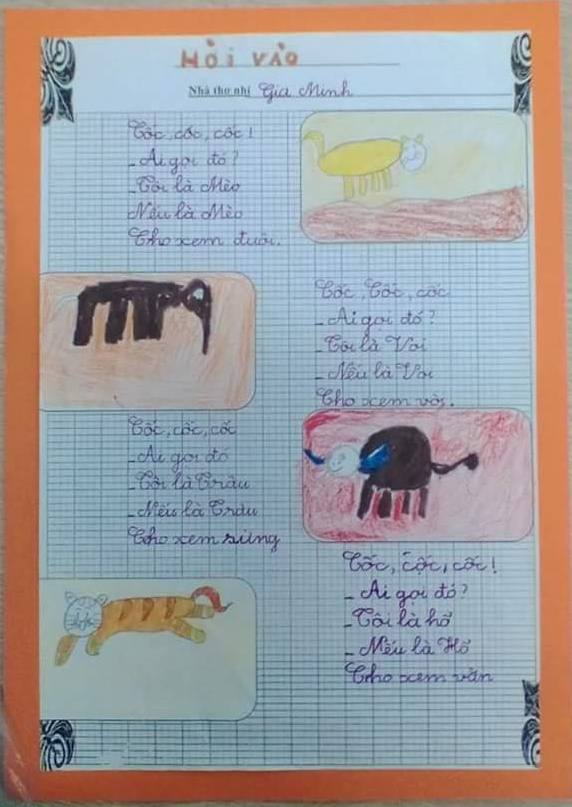 Hời vào
Nhà thơ nhí Gia Minh
Cốc, cốc, cốc!
- Ai gọi đó?
- Tôi là Mèo
Nếu là Mèo
Cho xem đuôi.
Cốc, Cốc, cốc
- Ai gọi đó?
- Tôi là Voi
- Nếu là Voi
Cho xem vòi.
Cốc, cốc, cốc
- Ai gọi đó
- Tôi là Trâu
- Nếu là Trâu
Cho xem sừng
Cốc, cốc, cốc!
- Ai gọi đó?
- Tôi là hổ
- Nếu là Hổ
Cho xem vằn